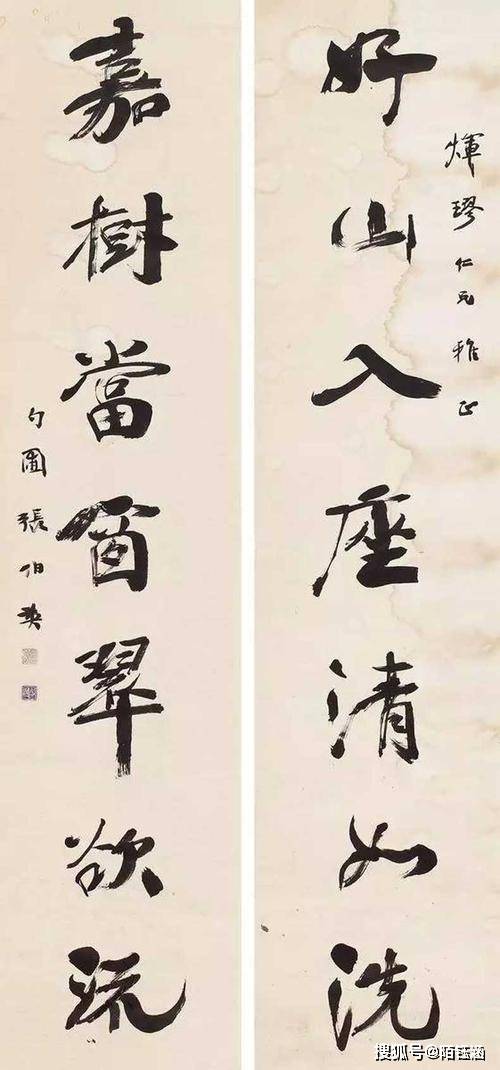 煇璆仁兄雅正
好山入座清如洗
嘉樹當窗翠欲流
勺圃張伯英
搜狐号@陌钰涵